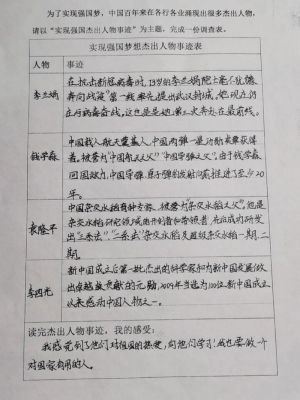 为了实现强国梦，中国百年来在各行各业涌现出很多杰出人物，
请以“实现强国杰出人物事迹”为主题，完成一份调查表。
实现强国梦想杰出人物事迹表
人物 事迹
李兰娟
在抗击新冠病毒时，73岁的李兰娟院士毫不犹豫
奔向战“疫”第一线，率先提出武汉封城。她现仍
在与病毒奋战，这也是她第三次奔赴在最前线。
钱学森
中国载人航天奠基人，中国两弹一星功勋奖章获得
者，被誉为“中国航天之父”“中国导弹之父”，由于钱学森
回国效力，中国导弹、原子弹的发射向前推进了至少20
年。
袁隆平
中国杂交水稻育种专家，被誉为“杂交水稻之父”，他是
杂交水稻研究领域的开创者和带领者，先后成功研发
出“三系法”“二系法”杂交水稻及超级杂交水稻一期、二
期。
李四光
新中国成立后第一批杰出的科学家和为新中国发展做
出卓越贡献的元勋，2009年当选为100位新中国成立
以来感动中国人物之一。
读完杰出人物事迹，我的感受：
我感受到了他们对祖国的热爱，向他们学习！我也要做一个
对国家有用的人。